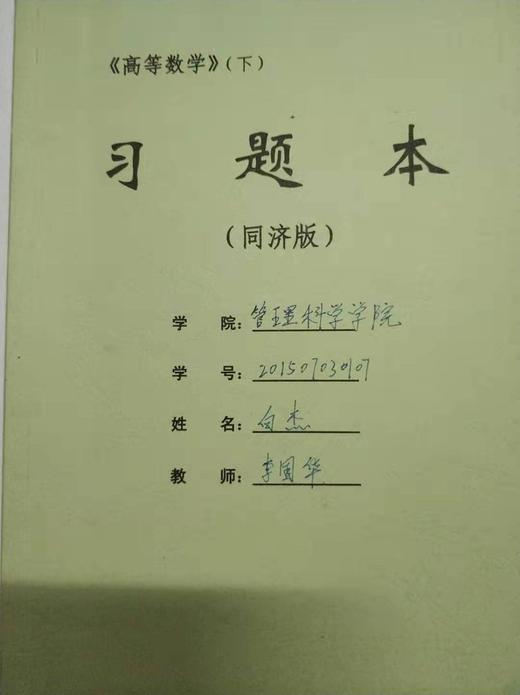 《高等数学》(下)
习题本
(同济版)
学 院: 管理科学学院
学 号: 201507030107
姓 名: 向杰
教 师: 李国华